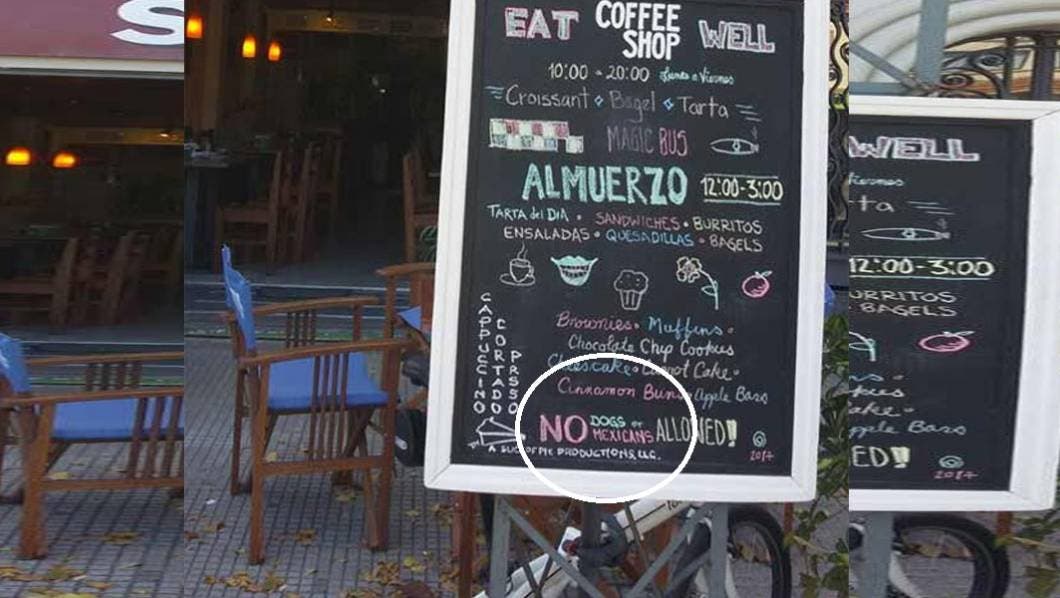 S
EAT COFFEE SHOP WELL
10:00 - 20:00 Lunes a Viernes
Croissant Bagel Tarta
MAGIC BUS
ALMUERZO 12:00-3:00
TARTA del DIA • SANDWICHES • BURRITOS
ENSALADAS • QUESADILLAS • BAGELS
CAPPUCCINO
CORTADO
Brownies • Muffins •
Chocolate Chip Cookies
Cheescake • Carrot Cake •
Cinnamon Buns Apple Bars
NO DOGS or MEXICANS ALLOWED!
A SLICE OF PIE PRODUCTIONS, LLC.
2017
WELL
iernes
ta
12:00-3:00
URRITOS
BAGELS
s •
kies
ake •
pple Bars
ED!
2017